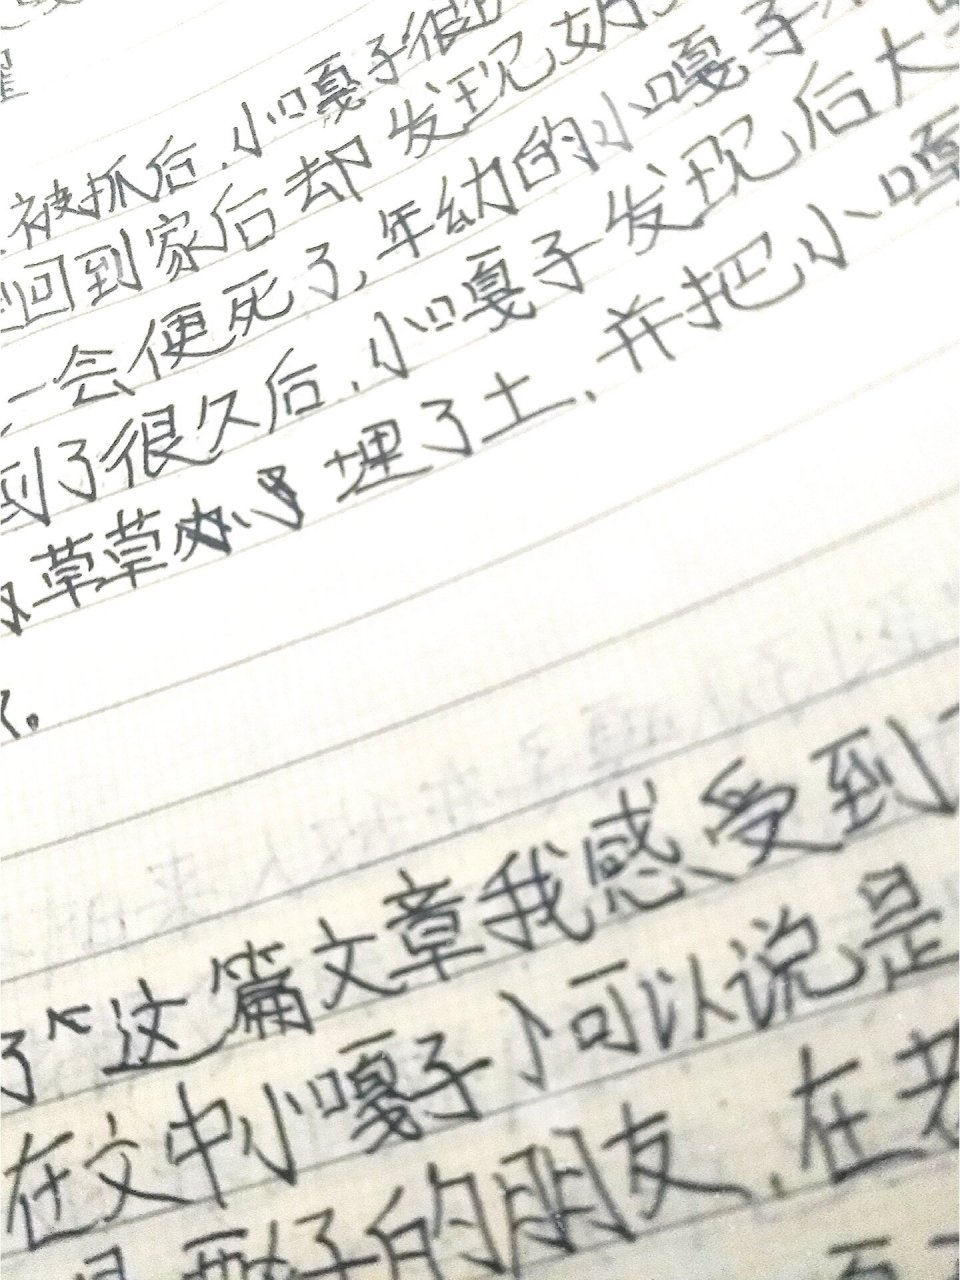 被抓后，小嘎子很
回到家后却发现奶
一会便死了，年幼的小嘎子
到了很久后，小嘎子发现后大
草草 了埋了土，并把小嘎
了“这篇文章我感受到
在文中小嘎子，可以说是
子的朋友，在老